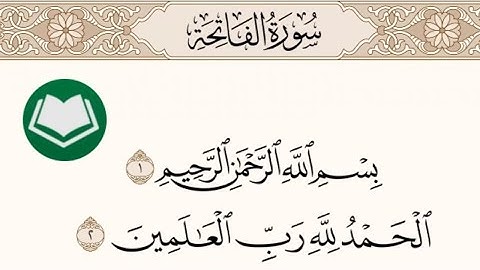 سُورَةُ الْفَاتِحَةِ
بِسْمِ ٱللَّهِ ٱلرَّحْمَٰنِ ٱلرَّحِيمِ ١
ٱلْحَمْدُ لِلَّهِ رَبِّ ٱلْعَٰلَمِينَ ٢